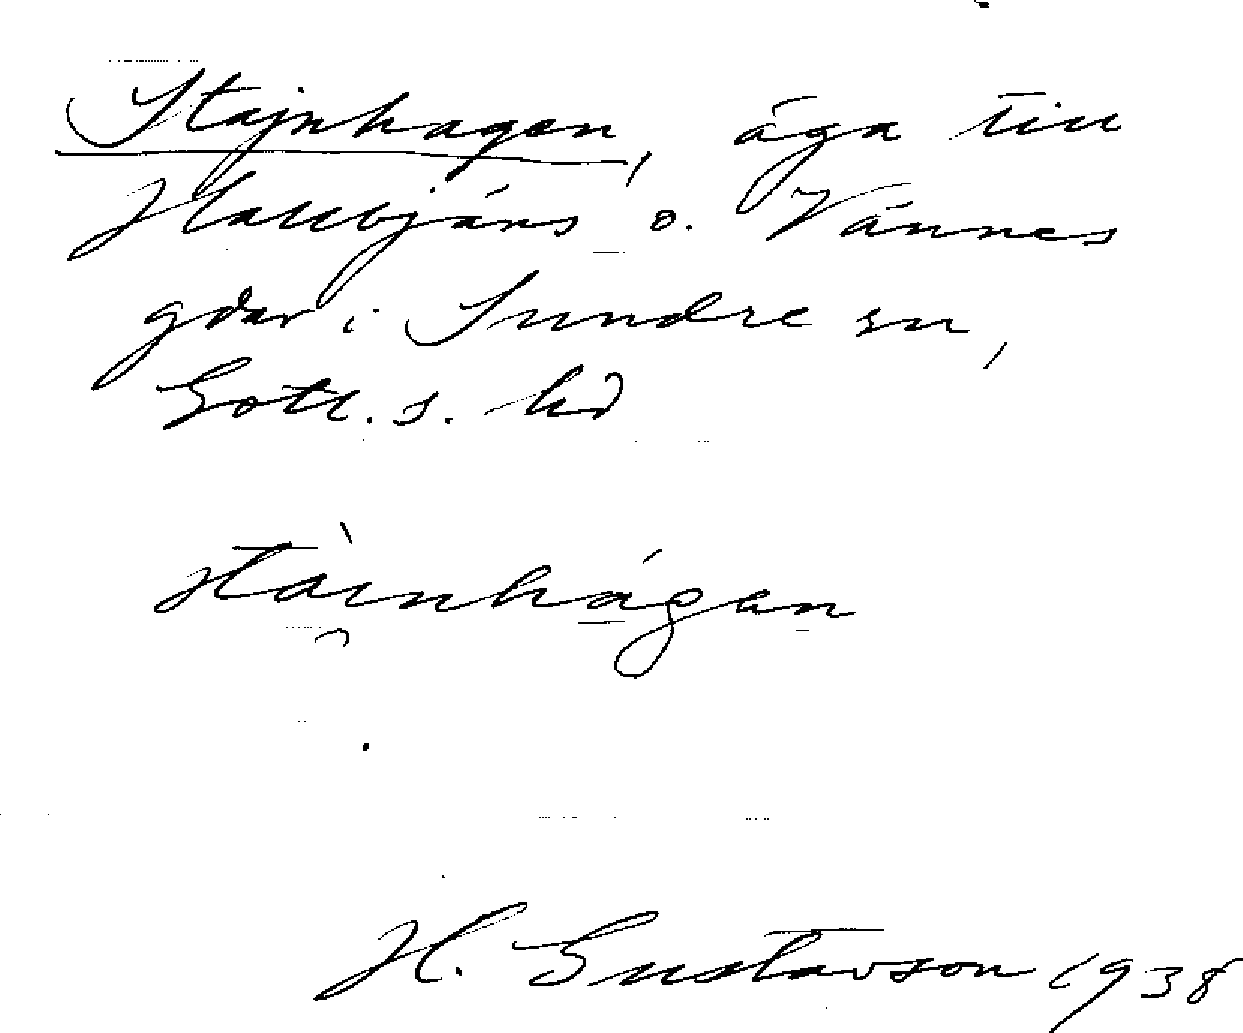 Stajnhagen, äga till
Hallbjäns o. Vännes
gdar i Sundre sn,
Gotl. s. hd
stàinhágen
H. Gustavson 1938